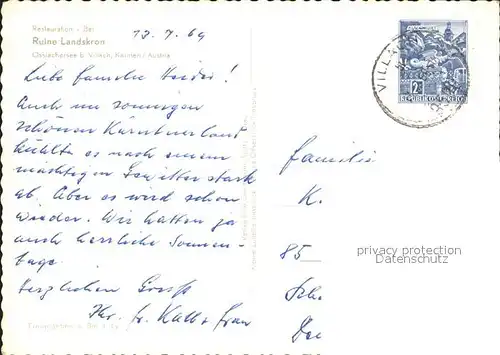 Restauration - Bar
Ruine Landskron
Ossiachersee b. Villach, Kärnten / Austria
13.7.69
Liebe Familie
Auch im sonnigen
schönen Kärntnerland
kühlte es nach einem
mächtigen Gewitter stark
ab. Aber es wird schon
wieder. Wir hatten ja
auch herrliche Sonnen-
tage.
Herzlichen Gruß
Ihr Fr. Kalb + Frau
VILLACH
2
REPUBLIK ÖSTERREICH
Familie
K.
85
privacy protection
Datenschutz